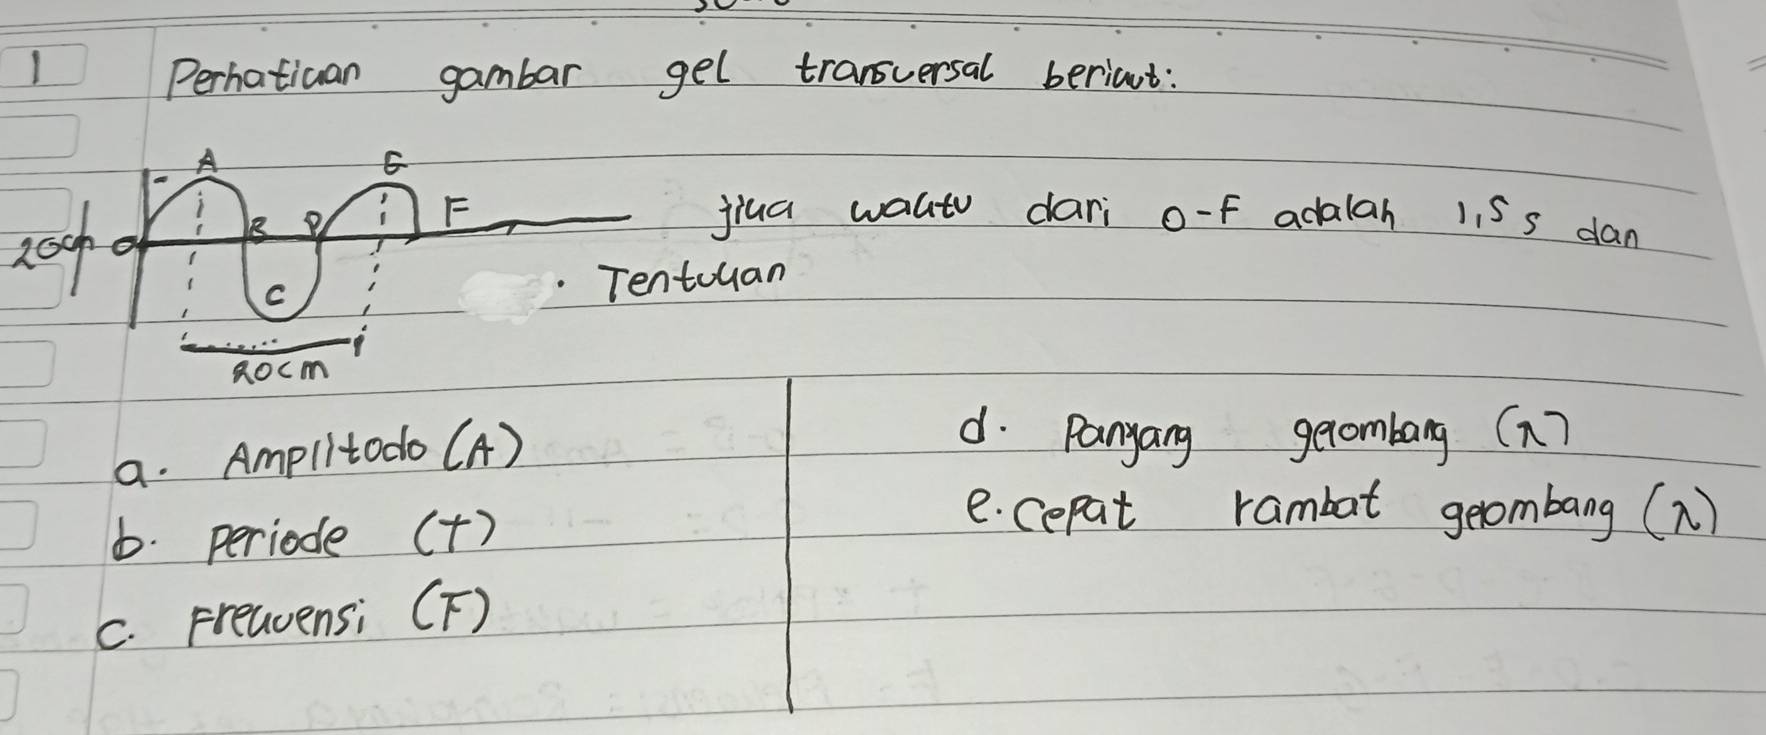 1 Perhatikan gambar gel transversal berikut:
A E
B D F jika waktu dari O-F adalah 1,5 s dan
20cm O
. Tentukan
C
20cm
a. Amplitodo (A)
b. Periode (T)
c. Frekuensi (F)
d. Panjang gelombang (λ)
e. Cepat rambat gelombang (λ)